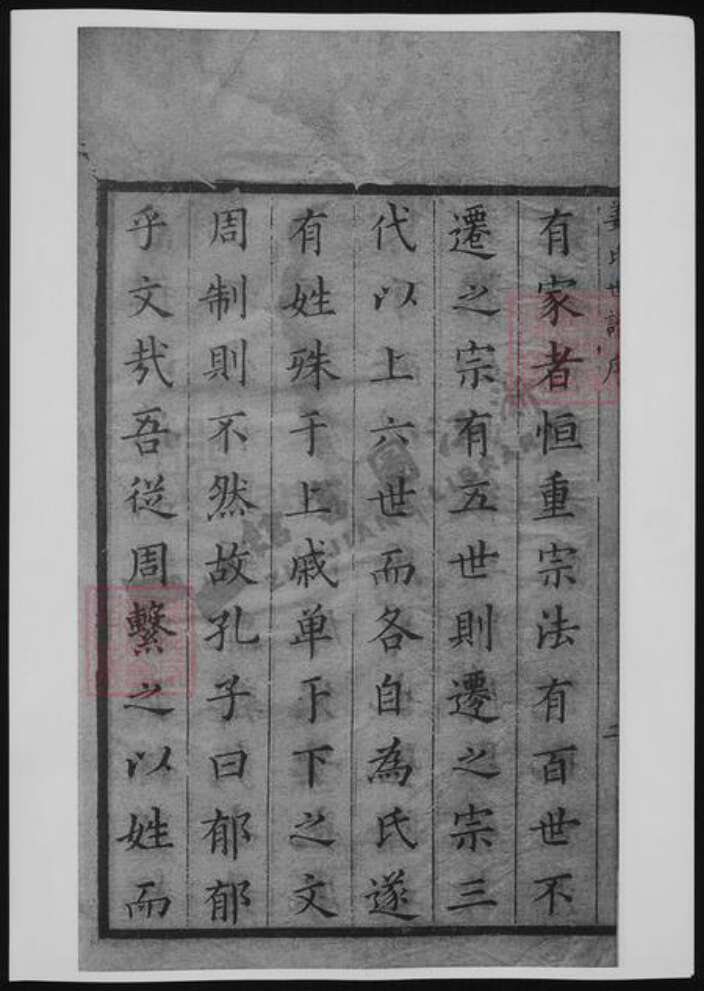 姜氏世譜序
有家者恒重宗法有百世不
遷之宗有五世則遷之宗三
代以上六世而各自為氏遂
有姓殊于上戚单于下之文
周制則不然故孔子曰郁郁
乎文哉吾從周繫之以姓而
二